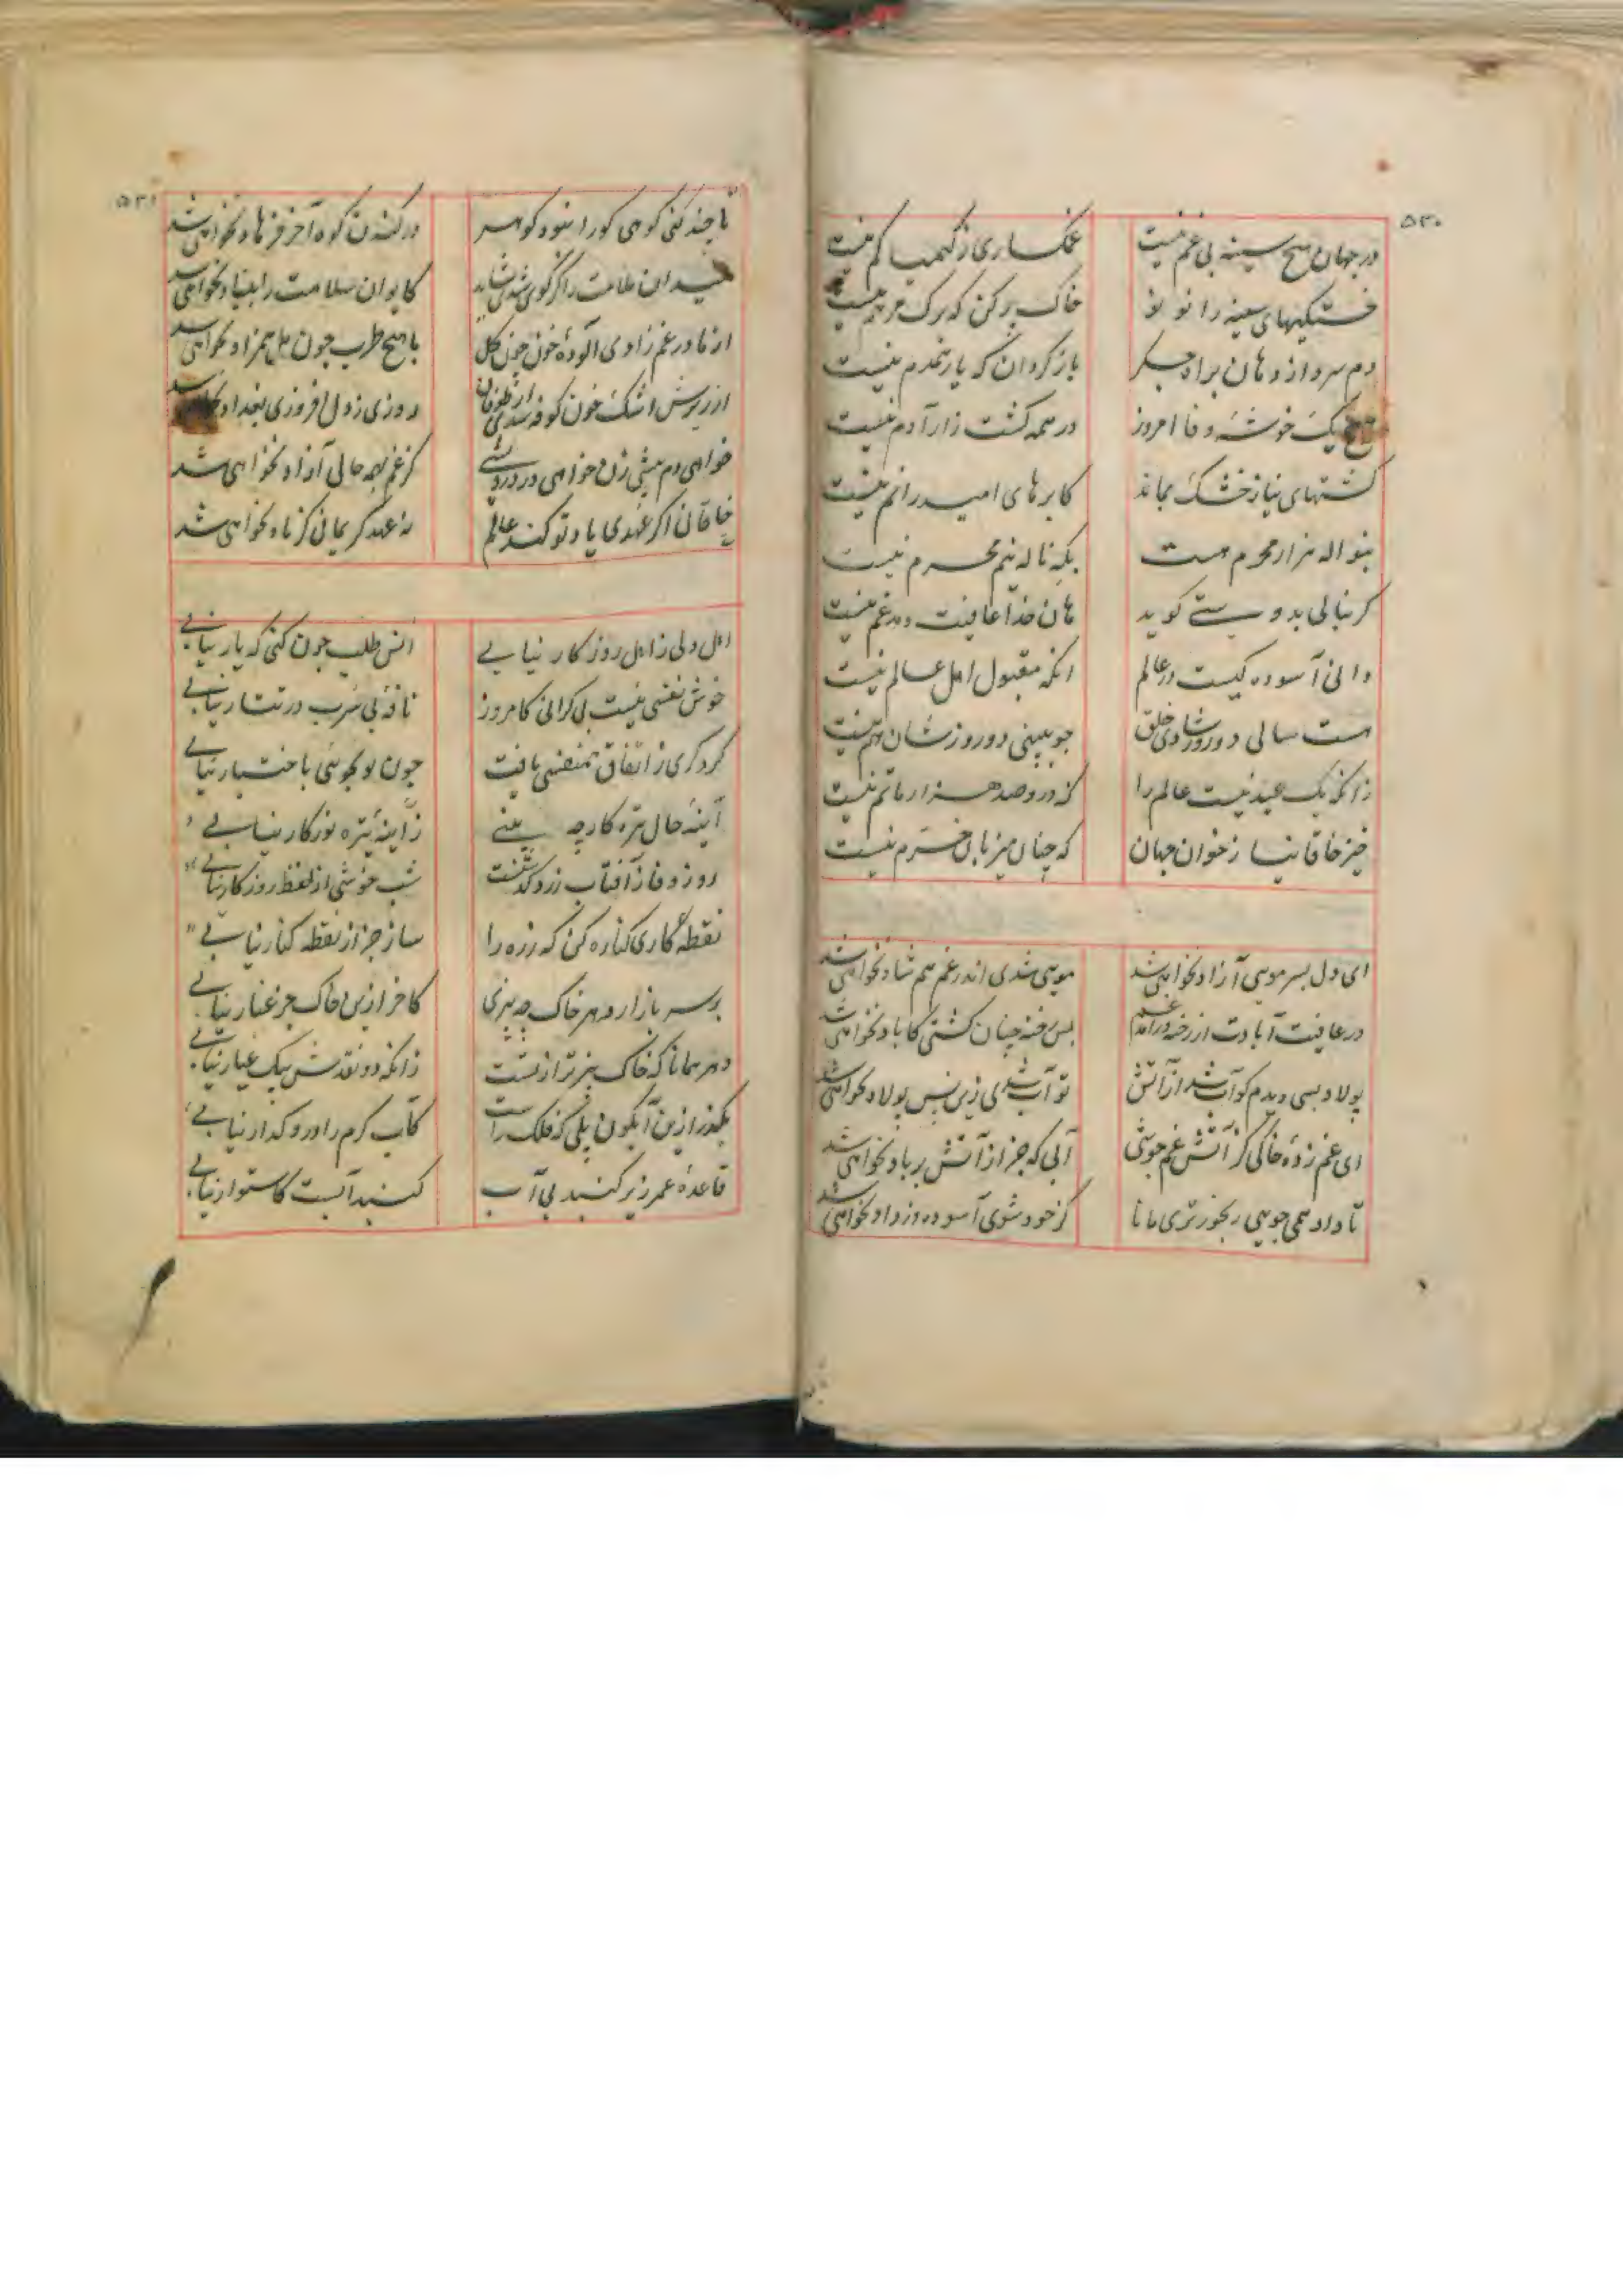 ۵۳۰
در جهان هیچ سینه بی غم نیست غمکساری ز کیمیا کم نیست
خستکیهای سینه را نو نو خاک پر کن که برک مرهم نیست
دم سرد از دهان براه جکر باز کردان که یار همدم نیست
هیچ یک خوشه وفا امروز در همه کشت زار آدم نیست
کشتهای نیاز خشک بماند کابرهای امید را نم نیست
بنواله هزار محرم هست بکه ناله نیم محرم نیست
کر بنالی بدوستی کوید هان خدا عافیت دهد غم نیست
دانی آسوده کیست در عالم انکه مقبول اهل عالم نیست
هست سالی دو روز شادی خلق جو ببینی دو روزشان هم نیست
زانکه یک عید نیست عالم را که درو صد هزار ماتم نیست
خیز خاقانیا ز خوان جهان که جهان میزبان خرم نیست
ای دل بسر مویی آزاد نخواهی شد مویی شدی اندر غم هم شاد نخواهی شد
در عافیت آبادت از رخنه درآمد غم بس رخنه چنان کشتی کاباد نخواهی شد
پولاد بسی دیدم کو آب شد از آتش تو آب شدی زین پس پولاد نخواهی شد
ای غم زده خاکی کز آتش غم جوشی آبی که جز از آتش بر باد نخواهی شد
تا داد همی جویی رنجورتری مانا کز خود شوی آسوده وز داد نخواهی شد
۵۳۱
تا چند کنی کوهی کورا نبود کوهر در کندن کوه آخر فرهاد نخواهی شد
میدان ملامت را کر کوی شدی شاید کایوان سلامت را بنیاد نخواهی شد
از مادر غم زادی آلوده خون چون کل با هیچ طرب چون مل همزاد نخواهی شد
از ریزش اشک خون کوفه شدی از طوفان روزی ز دل افروزی بغداد نخواهی شد
خواهی دم عیسی زن خواهی در درویشی کز غم بهمه حالی آزاد نخواهی شد
خاقانی اکر عهدی یاد تو کند عالم نه عهد کریمانی کز یاد نخواهی شد
اهل دلی ز اهل روزکار نیابی انس طلب چون کنی که یار نیابی
خوش نفسی نیست بی کرانی کامروز نافه بی شرب در تتار نیابی
کر دکری ز اتفاق همنفسی یافت چون تو بجویی باختیار نیابی
آینه حال تیره کار چه بینی ز آینه تیره نور کار نیابی
روز وفا ز آفتاب زرد کذشتست شب خوشی از لفظ روزکار نیابی
نقطه کاری کناره کن که زره را ساز جز از نقطه کنار نیابی
بر سر بازار دهر خاک چه بیزی کاخر ازین خاک جز غبار نیابی
دهر همانا که خاک بیزتر از تست زانکه دو نقدش بیک عیار نیابی
بکذر ازین آبکون پلی که فلک راست کاب کرم را درو کذار نیابی
قاعده عمر زیر کنبد بی آب کنبد آبست کاستوار نیابی